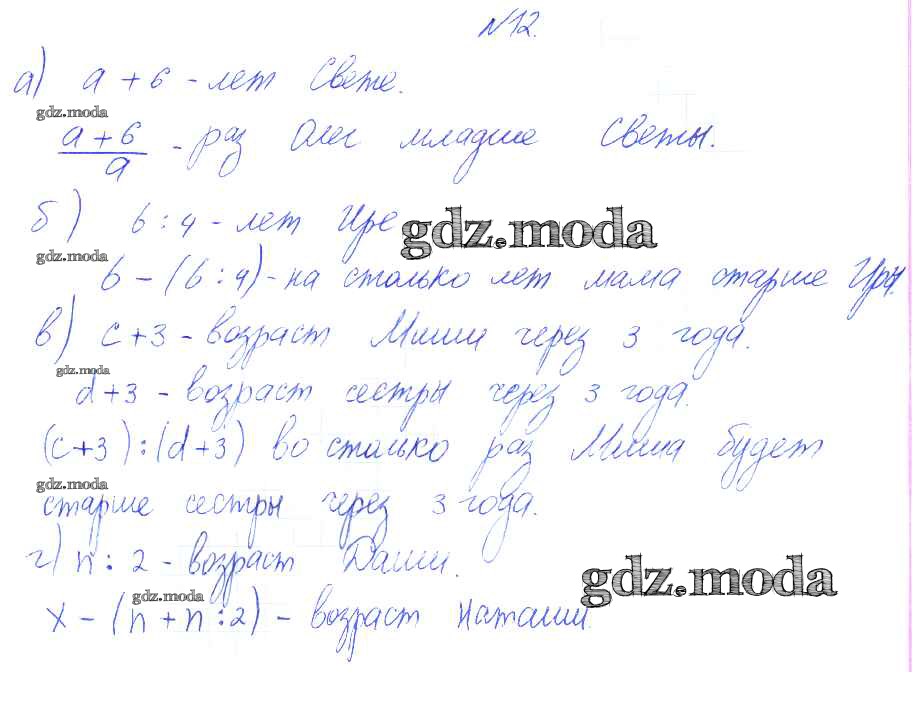 №12.
а) a + 6 - лет Свете.
gdz.moda
a + 6
a
- раз Олег младше Светы.
б) b : 4 - лет Ире
gdz.moda
gdz.moda
b - (b : 4) - на столько лет мама старше Иры.
в) c + 3 - возраст Миши через 3 года.
gdz.moda
d + 3 - возраст сестры через 3 года.
(c + 3) : (d + 3) во столько раз Миша будет
gdz.moda
старше сестры через 3 года.
г) n : 2 - возраст Даши.
gdz.moda
gdz.moda
x - (n + n : 2) - возраст Наташи.